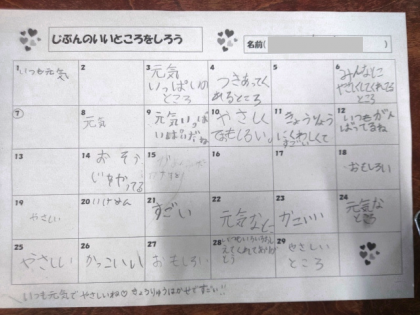 じぶんのいいところをしろう
名前( )
1 いつも元気
2
3 元気
いっぱいの
ところ
4 つきあってく
れるところ
5
6 みんなに
やさしくしてくれてる
ところ
7
8 元気
9 元気いっぱ
いだね
10 やさしく
ておもしろい。
11 きょうりゅう
にくわしくて
すごい
12 いつもがん
ばってるね
13
14
15
16
17
18 おもしろい
19 やさしい
20 いけめん
21 すごい
22 元気なと
23 かっこいい
24 元気な
ところ
25 やさしい
26 かっこいい
27 おもしろい
28
29 やさしい
ところ
いつも元気でやさしいね♡きょうりゅうはかせですごい!!